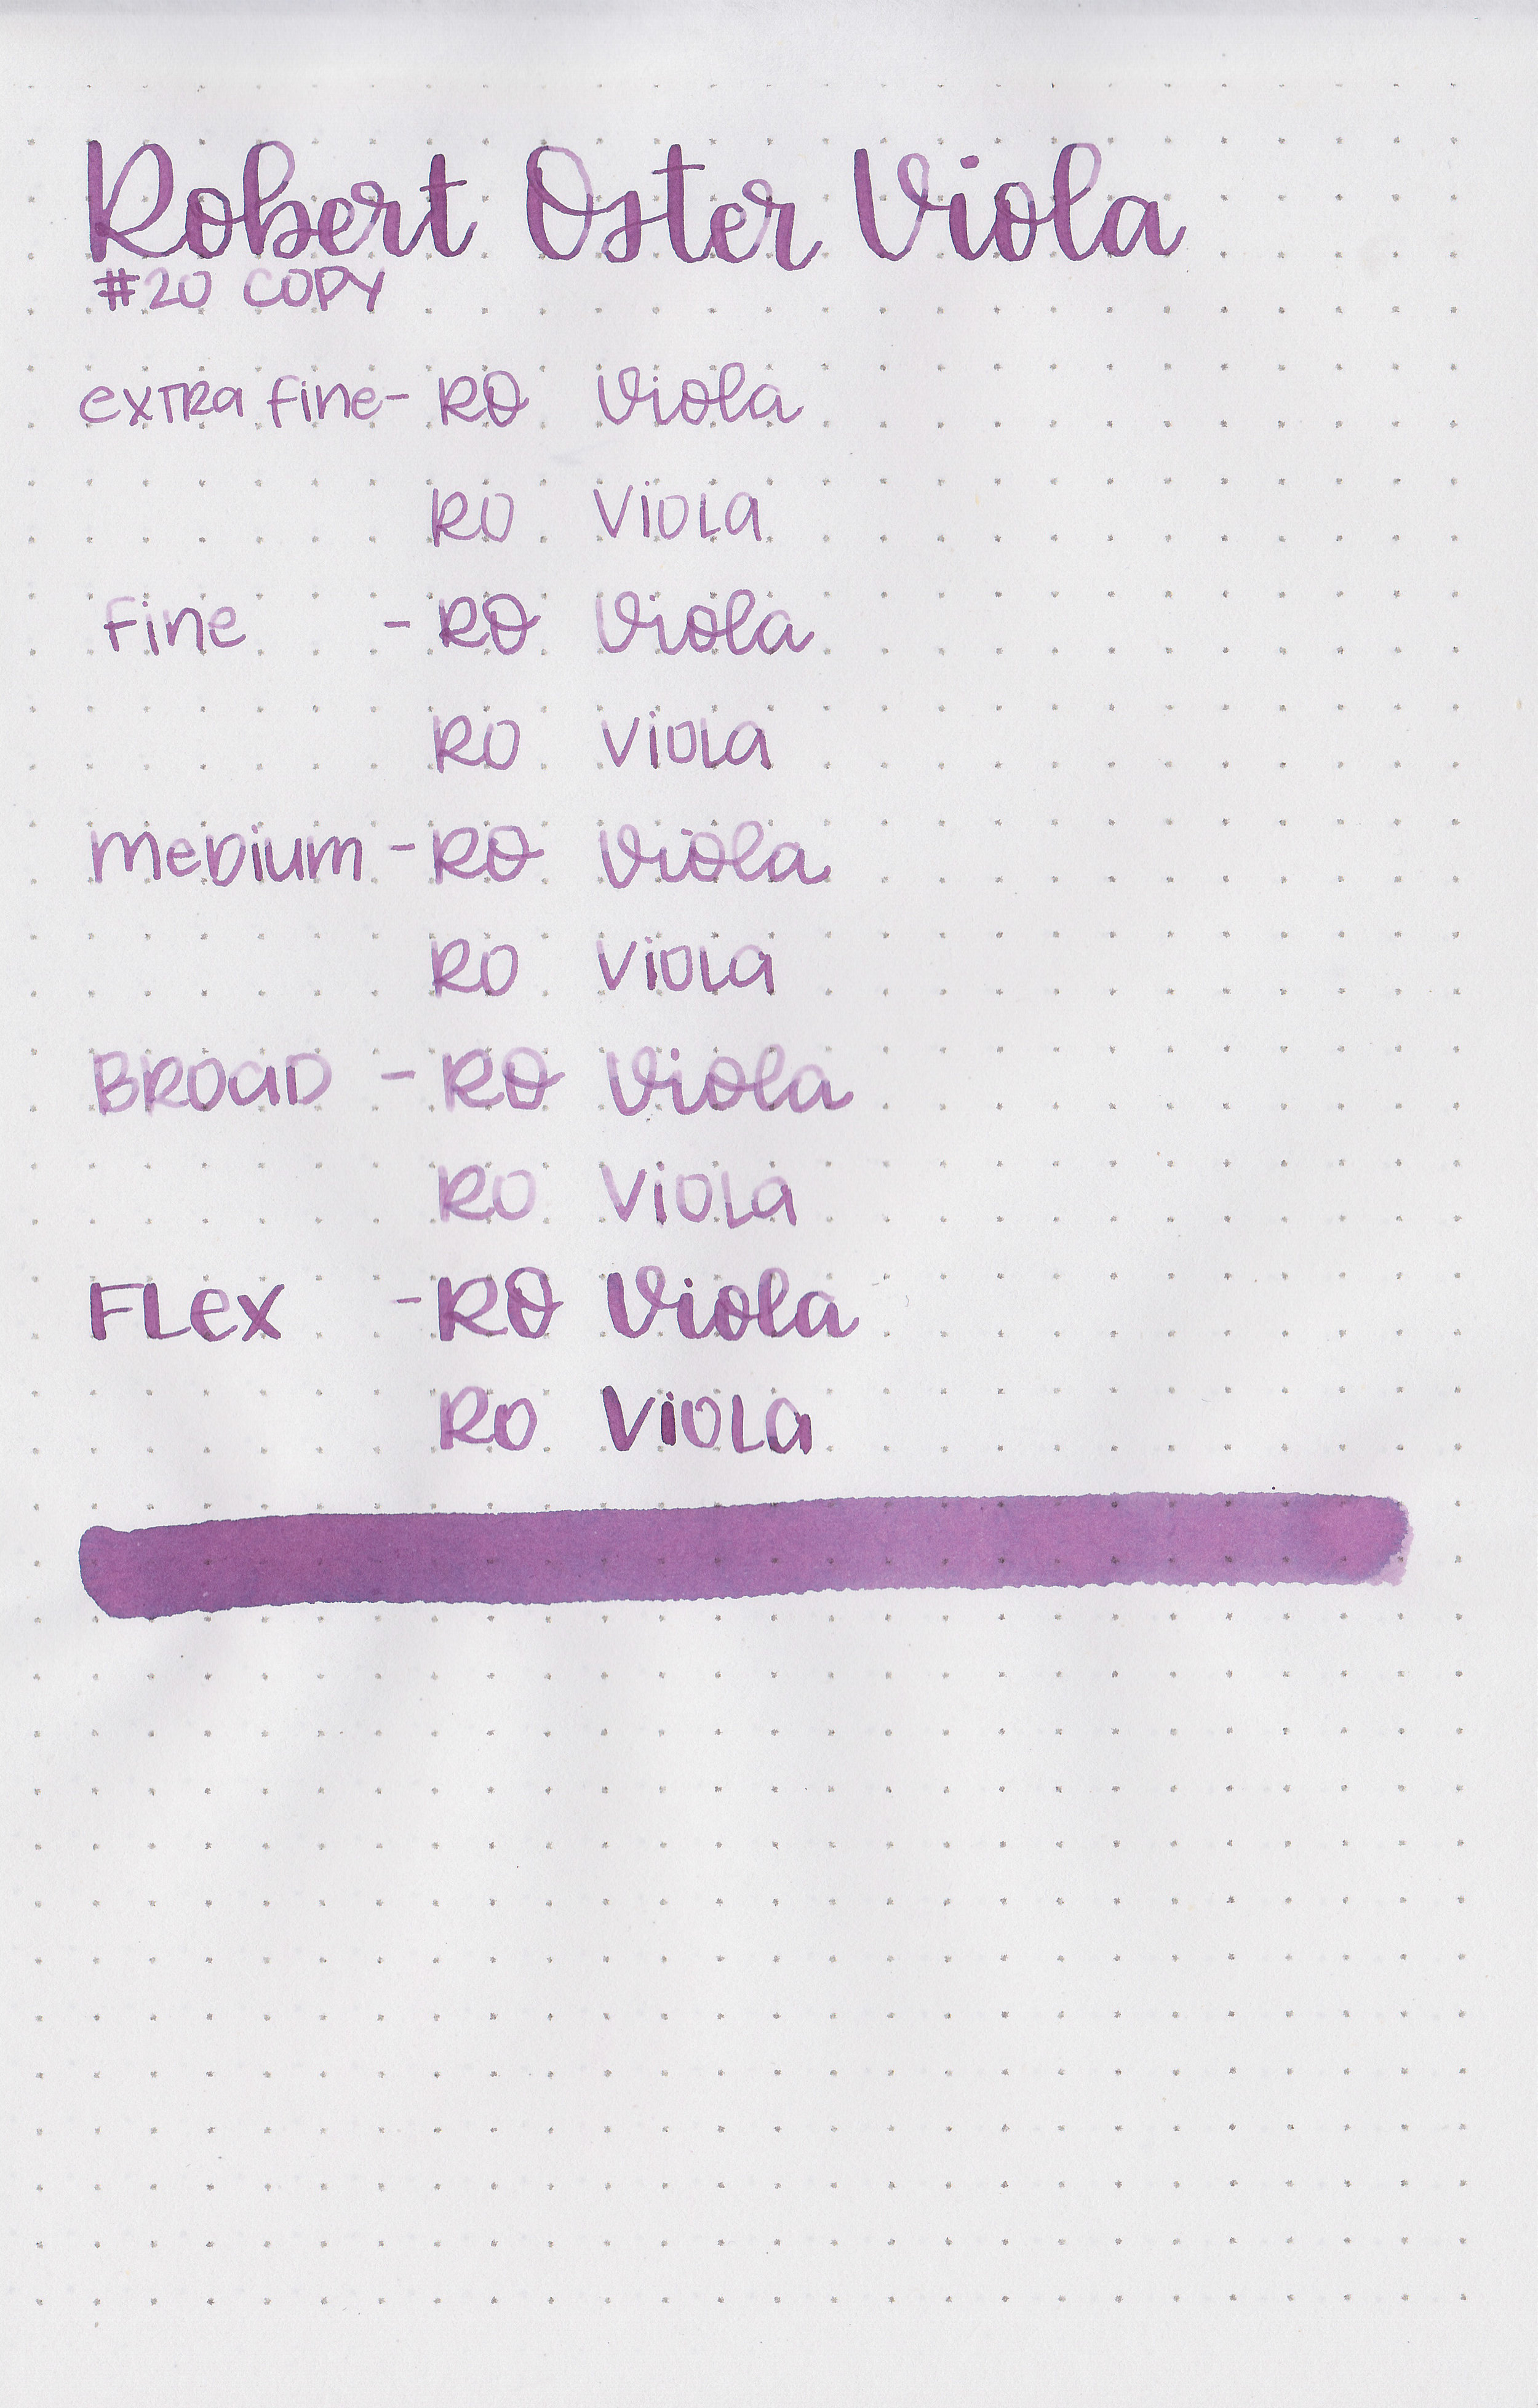 Robert Oster Viola
#20 COPY
extra fine - RO Viola
RO Viola
Fine - RO Viola
RO Viola
Medium - RO Viola
RO Viola
Broad - RO Viola
RO Viola
Flex - RO Viola
RO Viola